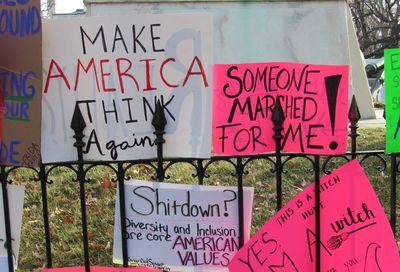 MAKE
AMERICA
THINK
Again
SOMEONE
MARCHED
FOR ME!
Shitdown?
Diversity and Inclusion
are core AMERICAN
VALUES
YES,
THIS IS A
WITCH
HUNT
I'M A
witch
you
OUND